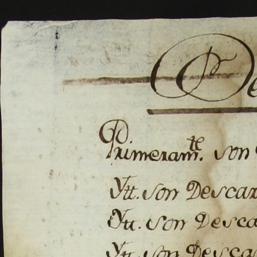 De
Primeram.te son
Ytt. son Descar
Ytt. son Desca
Ytt. son Desca